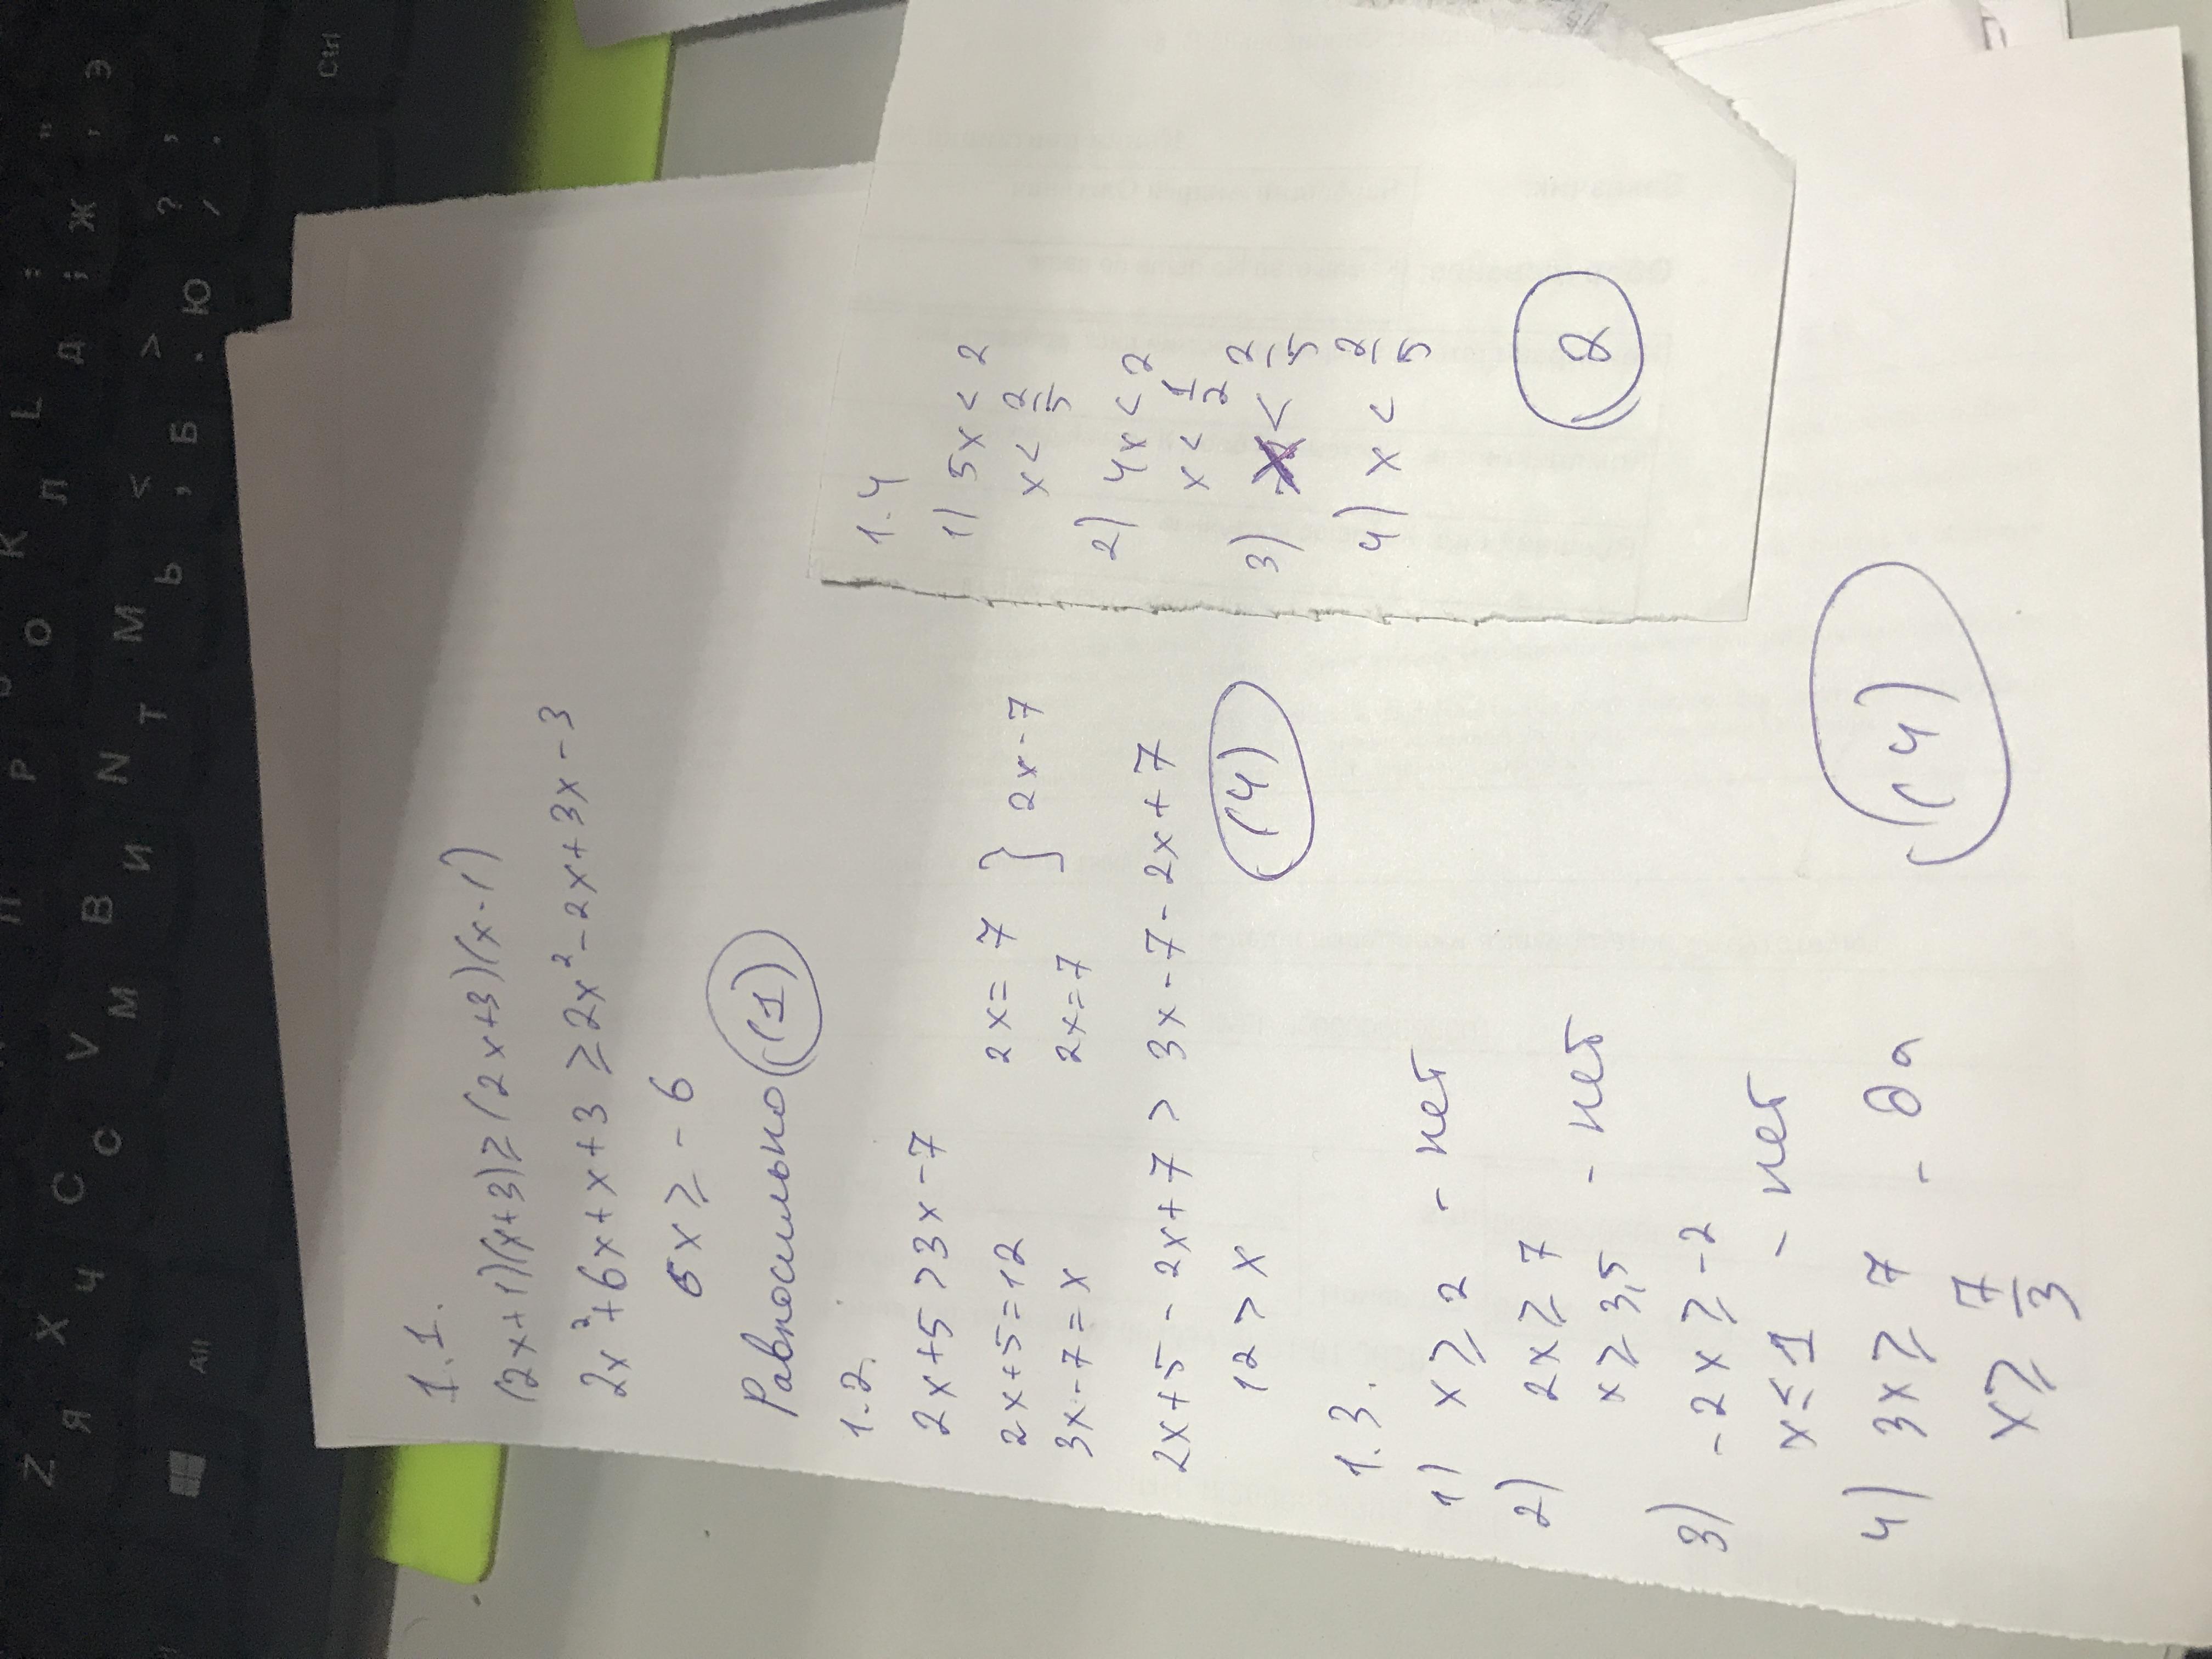 1.1.
(2x+1)(x+3)≥(2x+3)(x-1)
2x²+6x+x+3≥2x²-2x+3x-3
6x≥-6
Равносильно (1)
1.2.
2x+5>3x-7
2x+5=12 2x=7 } 2x-7
3x-7=x 2x=7
2x+5-2x+7>3x-7-2x+7
12>x (4)
1.3.
1) x≥2 - нет
2) 2x≥7
x≥3,5 - нет
3) -2x≥-2
x≤1 - нет
4) 3x≥7 - да
x≥7/3
(4)
1.4
1) 5x<2
x<2/5
2) 4x<2
x<1/2
3) x<2/5
4) x<2/5
2
Ctrl
Alt
Z Я X Ч C С V М B И N Т M Ь Б Ю
Р О Л K L Д Ж Э
< , > . ? /